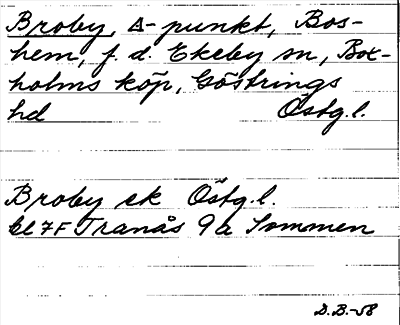 Broby, Δ-punkt, Bos-
hem, f. d. Ekeby sn, Box-
holms köp, Göstrings
hd Östg.l.
Broby ek Östg.l.
bl 7F Tranås 9a Sommen
D.B.-58